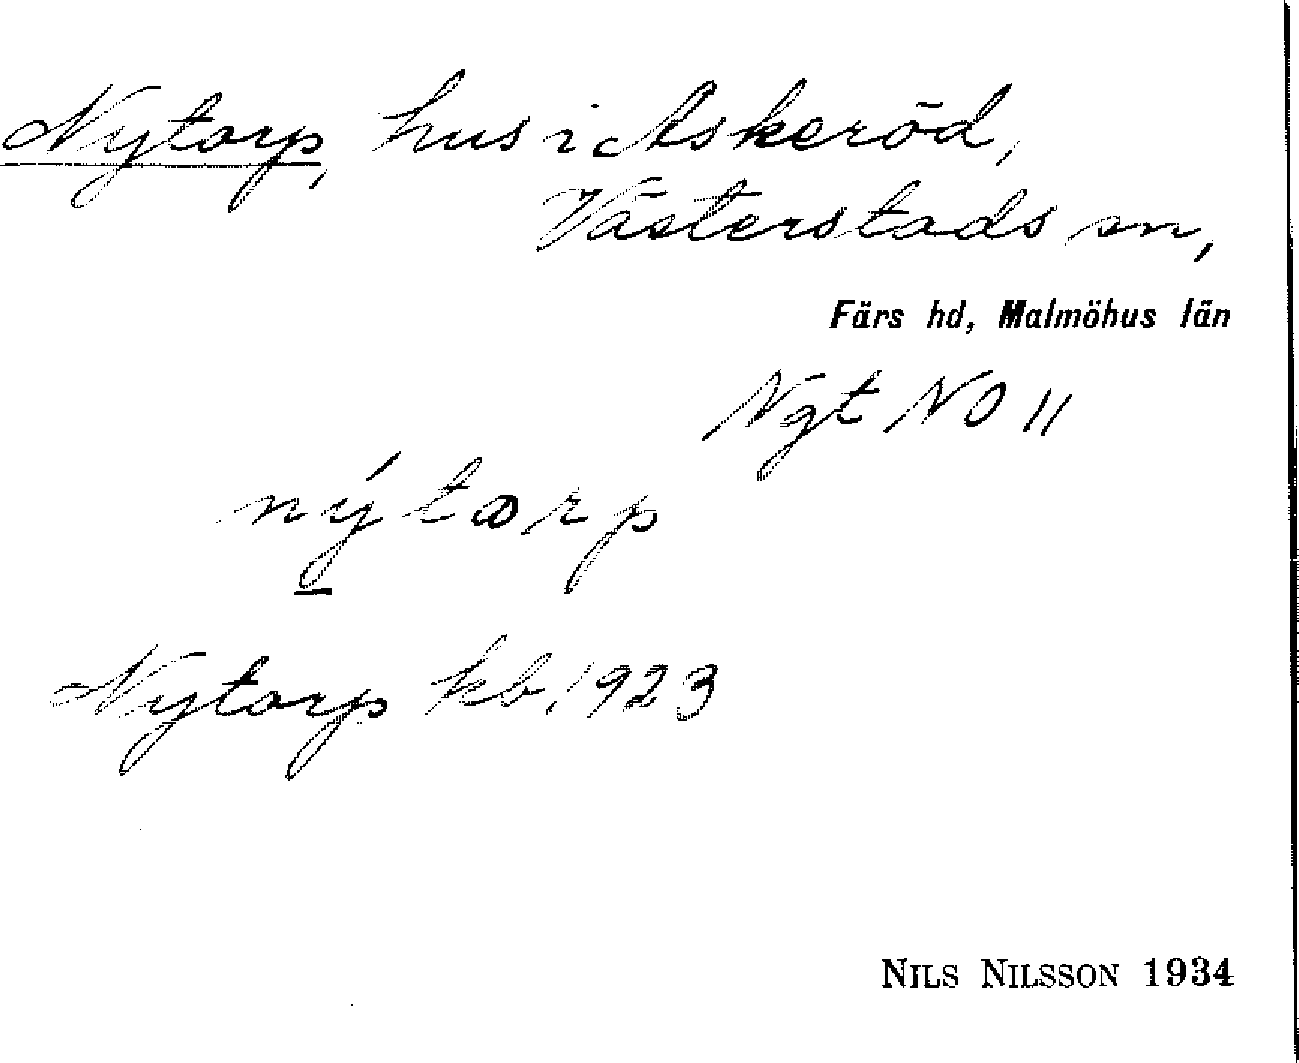 Nytorp, hus i Askeröd,
Västerstads sn,
Färs hd, Malmöhus län
Ngt NO 11
nýtorp
Nytorp kb. 1923
NILS NILSSON 1934